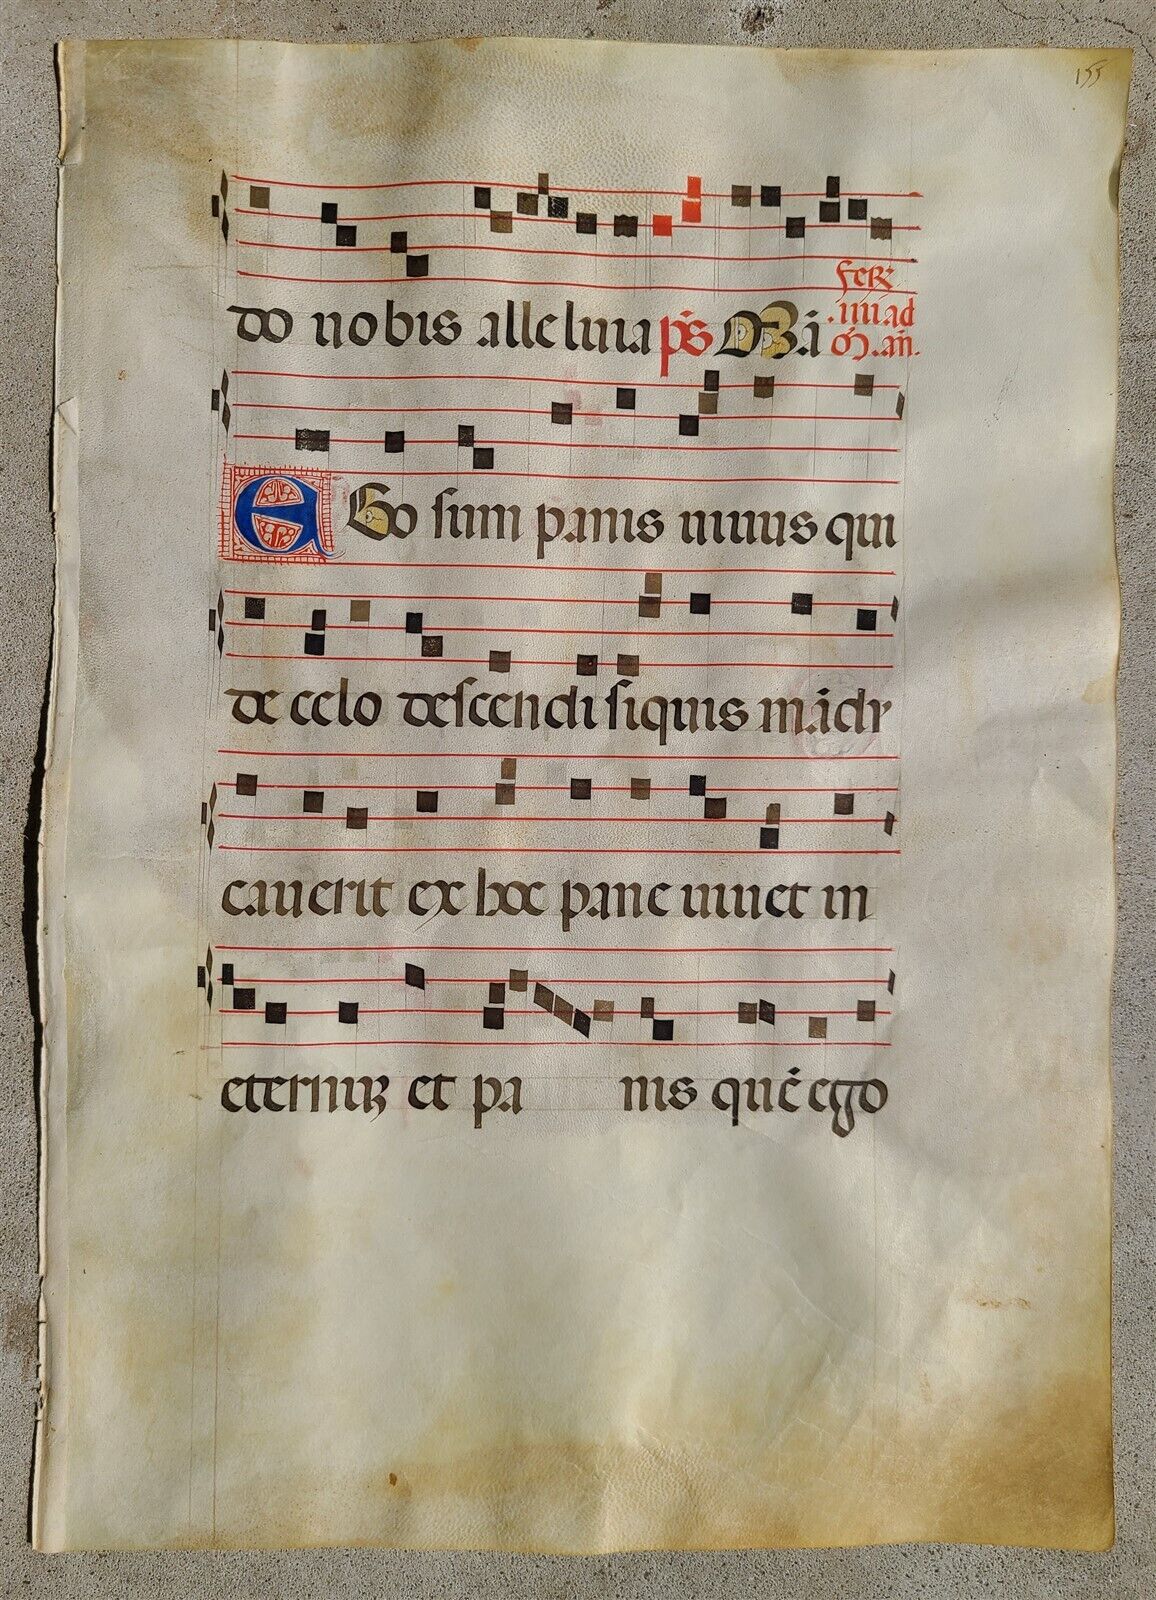 155
do nobis alleluia ps
fer
.iiii ad
EGo sum panis uiuus qui
de celo descendi siquis mãdu
cauerit ex hoc pane uiuet in
eternuʒ et pa nis quē ego